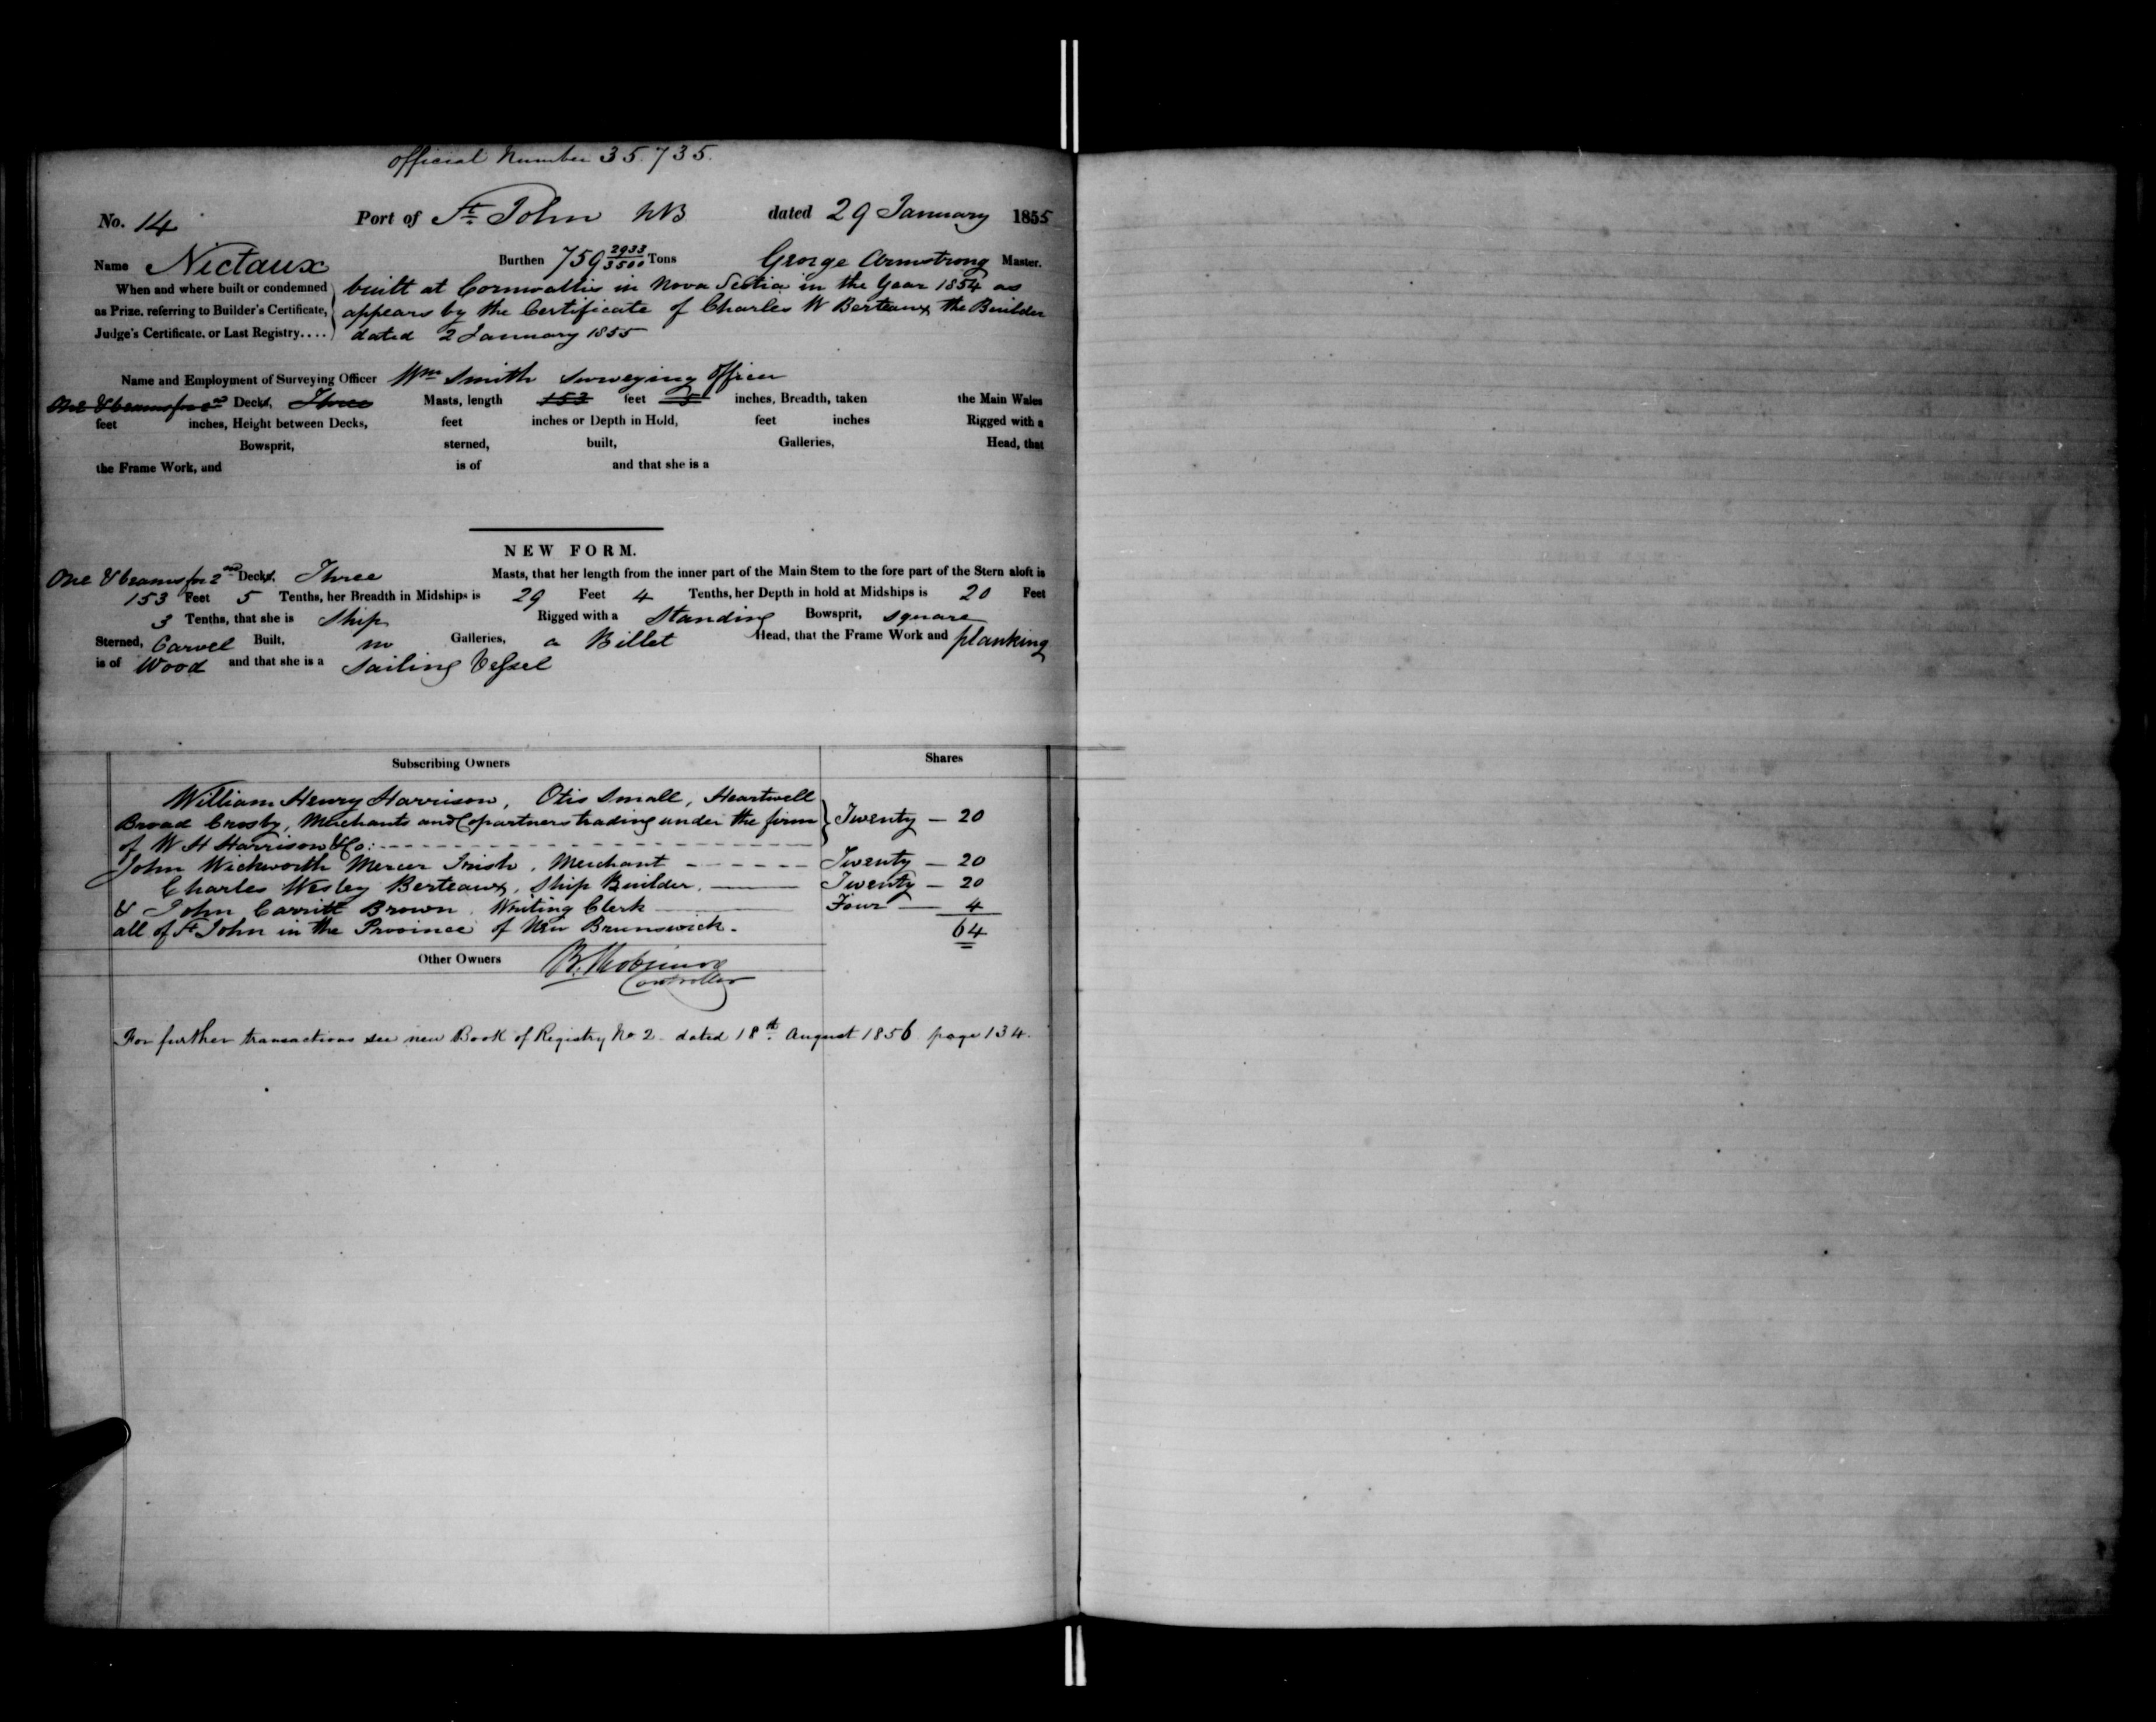 Official Number 35.735.
No. 14 Port of St. John NB dated 29 January 1855
Name Nictaux Burthen 759 2933/3500 Tons George Armstrong Master.
When and where built or condemned built at Cornwallis in Nova Scotia in the Year 1854 as
as Prize, referring to Builder's Certificate, appears by the Certificate of Charles W Berteaux the Builder
Judge's Certificate, or Last Registry.... dated 2 January 1855
Name and Employment of Surveying Officer Wm Smith Surveying Officer
One & beams for 2nd Decks, Three Masts, length 153 feet 5 inches, Breadth, taken the Main Wales
feet inches, Height between Decks, feet inches or Depth in Hold, feet inches Rigged with a
Bowsprit, sterned, built, Galleries, Head, that
the Frame Work, and is of and that she is a
NEW FORM.
One & beams for 2nd Decks, Three Masts, that her length from the inner part of the Main Stem to the fore part of the Stern aloft is
153 Feet 5 Tenths, her Breadth in Midships is 29 Feet 4 Tenths, her Depth in hold at Midships is 20 Feet
3 Tenths, that she is Ship Rigged with a Standing Bowsprit, square
Sterned, Carvel Built, no Galleries, a Billet Head, that the Frame Work and planking
is of Wood and that she is a Sailing Vessel
Subscribing Owners Shares
William Henry Harrison, Otis Small, Heartwell
Broad Crosby, Merchants and Copartners trading under the firm Twenty — 20
of W H Harrison & Co:
John Wickworth Mercer Irish, Merchant Twenty — 20
Charles Wesley Berteaux, Ship Builder, Twenty — 20
& John Carritt Brown, Writing Clerk Four — 4
all of St John in the Province of New Brunswick. 64
Other Owners B. Robinson
Controller
For further transactions see new Book of Registry No 2 dated 18th August 1856 page 134.